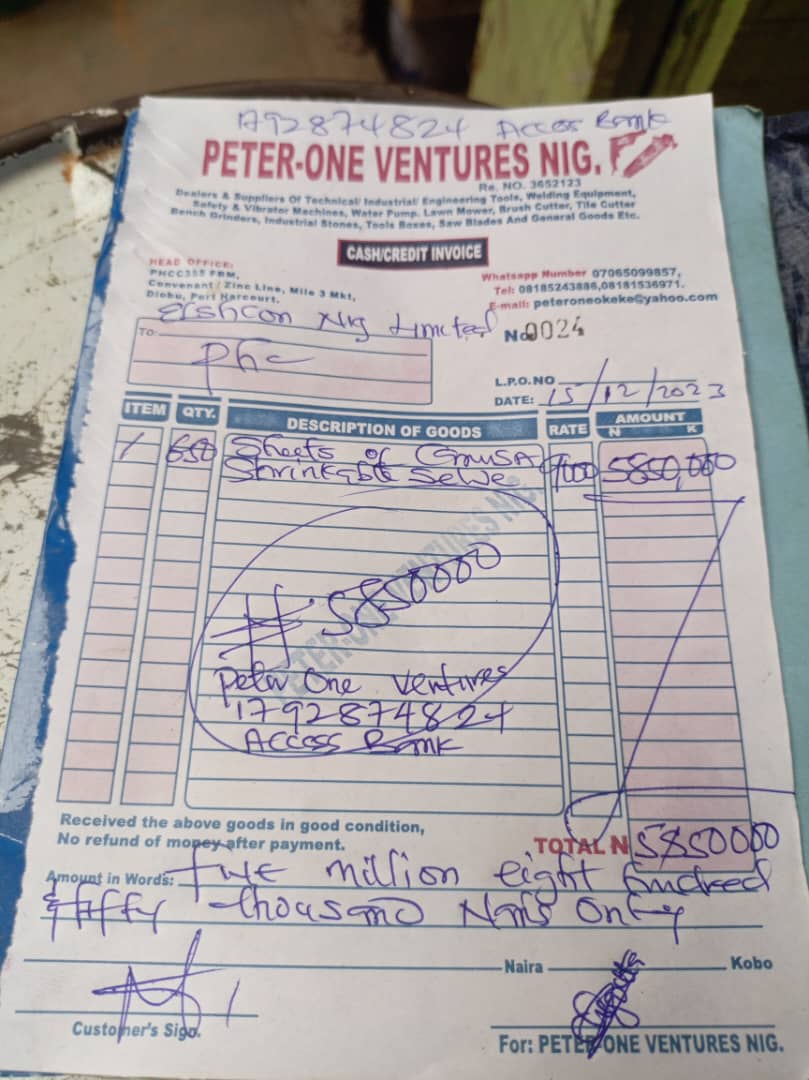 1792874824 Acces Bank
PETER-ONE VENTURES NIG.
Re. NO. 3652123
Dealers & Suppliers Of Technical/ Industrial/ Engineering Tools, Welding Equipment,
Safety & Vibrator Machines, Water Pump. Lawn Mower, Brush Cutter, Tile Cutter
Bench Grinders, Industrial Stones, Tools Boxes, Saw Blades And General Goods Etc.
CASH/CREDIT INVOICE
HEAD OFFICE:
PHCC355 FBM,
Convenant / Zinc Line, Mile 3 Mkt,
Diobu, Port Harcourt.
Whatsapp Number 07065099857,
Tel: 08185243886,08181536971.
E-mail: peteroneokeke@yahoo.com
Nig Limited
To:
Phc
No 0024
L.P.O.NO
DATE: 15/12/2023
ITEM QTY. DESCRIPTION OF GOODS RATE AMOUNT
N K
1 650 Sheets of 9000 5850,000
Shrinkable
PETER-ONE VENTURES NIG.
₦ 5850000
Peter One Ventures
1792874824
Access Bank
Received the above goods in good condition,
No refund of money after payment.
TOTAL N 5850000
Amount in Words: Five million eight hundred
& fifty thousand only
Naira Kobo
Customer's Sign.
For: PETER-ONE VENTURES NIG.